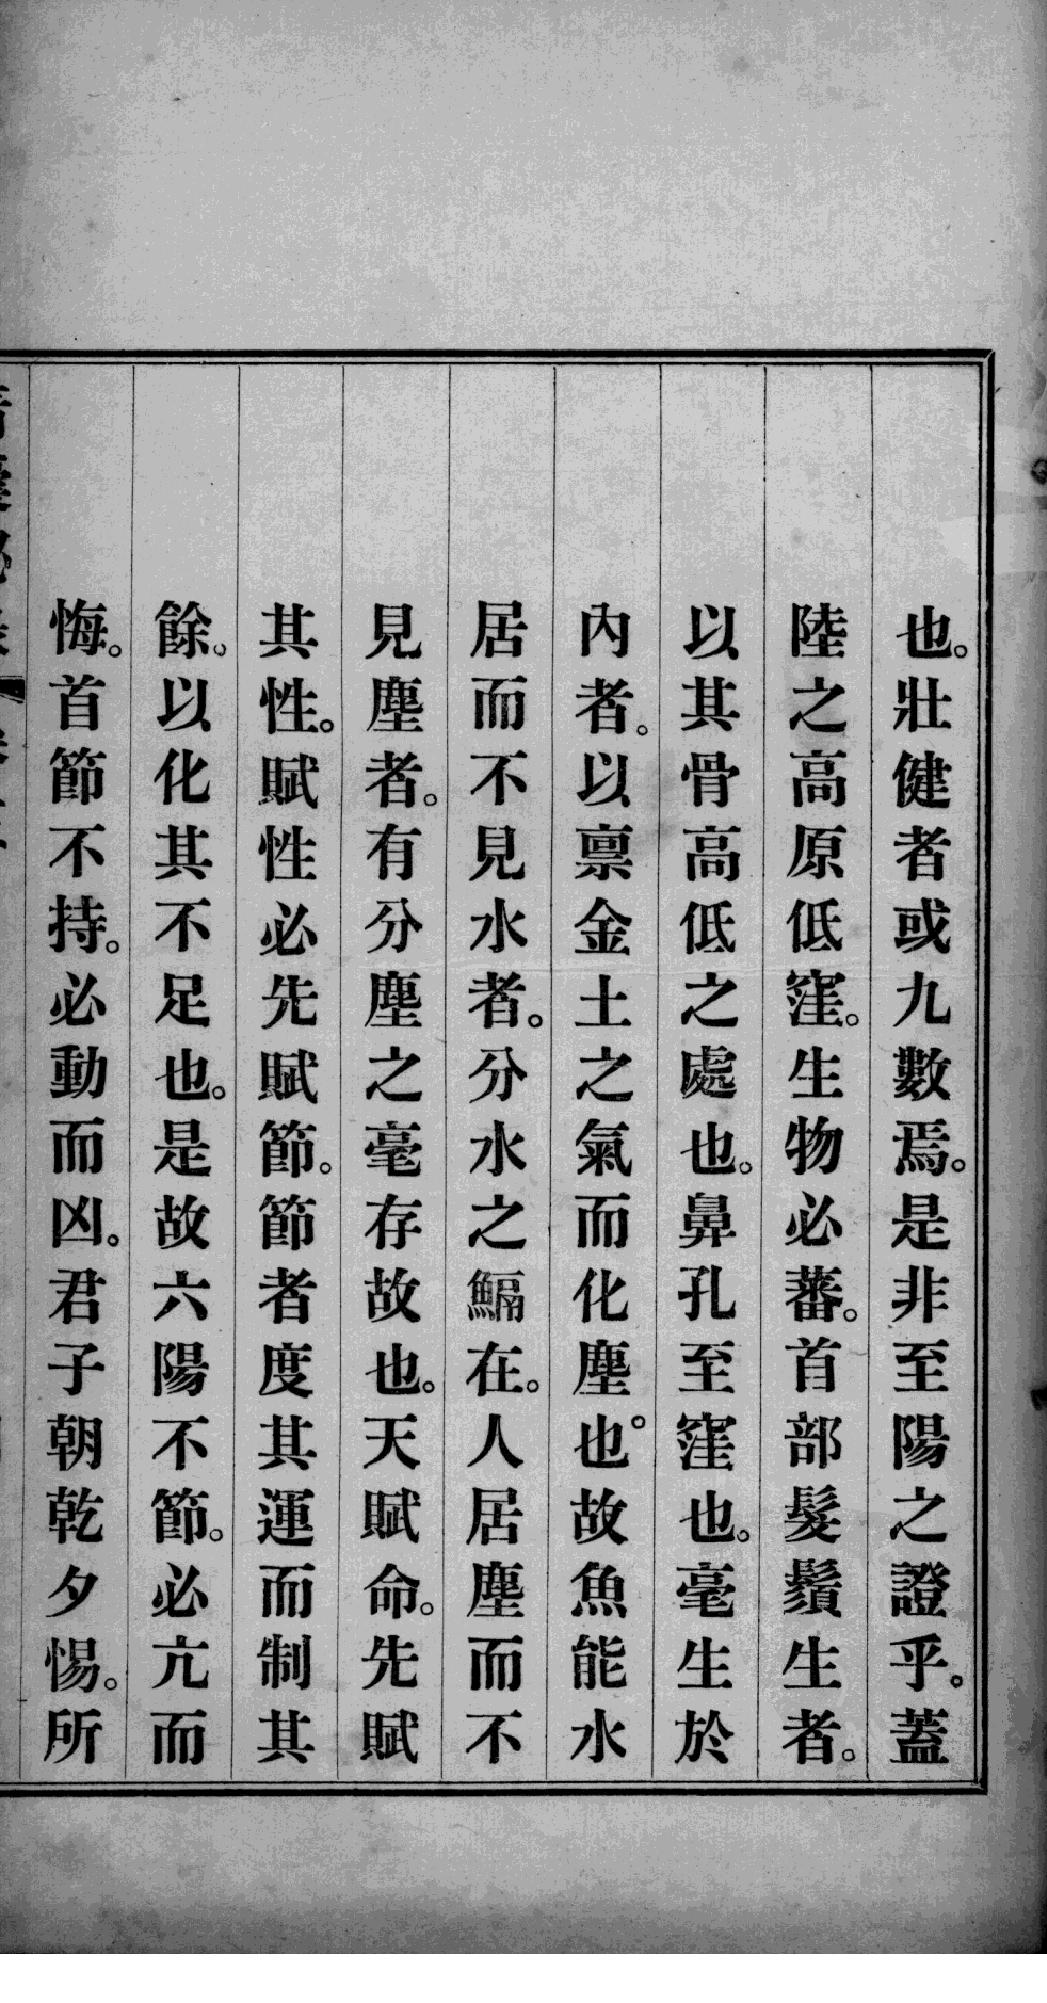 也。壯健者或九數焉。是非至陽之證乎。蓋
陸之高原低窪。生物必蕃。首部髮鬚生者。
以其骨高低之處也。鼻孔至窪也。毫生於
內者。以禀金土之氣而化塵也。故魚能水
居而不見水者。分水之鰏在。人居塵而不
見塵者。有分塵之毫存故也。天賦命。先賦
其性。賦性必先賦節。節者度其運而制其
餘。以化其不足也。是故六陽不節。必亢而
悔。首節不持。必動而凶。君子朝乾夕惕。所